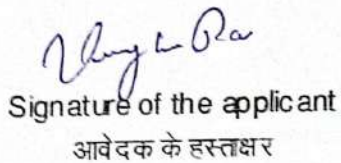 Signature of the applicant
आवेदक के हस्ताक्षर